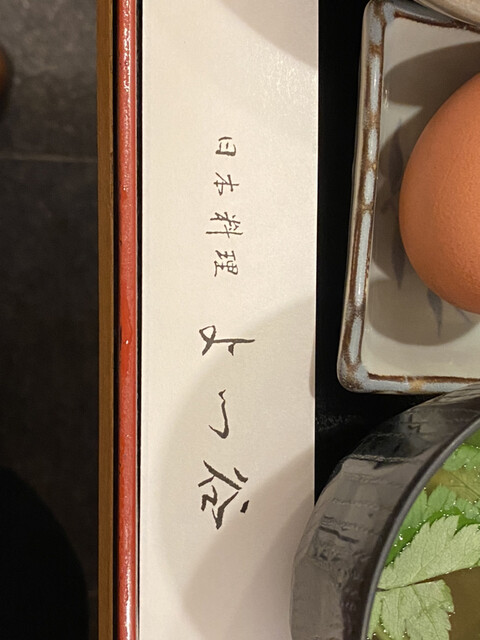 日本料理 よつ谷